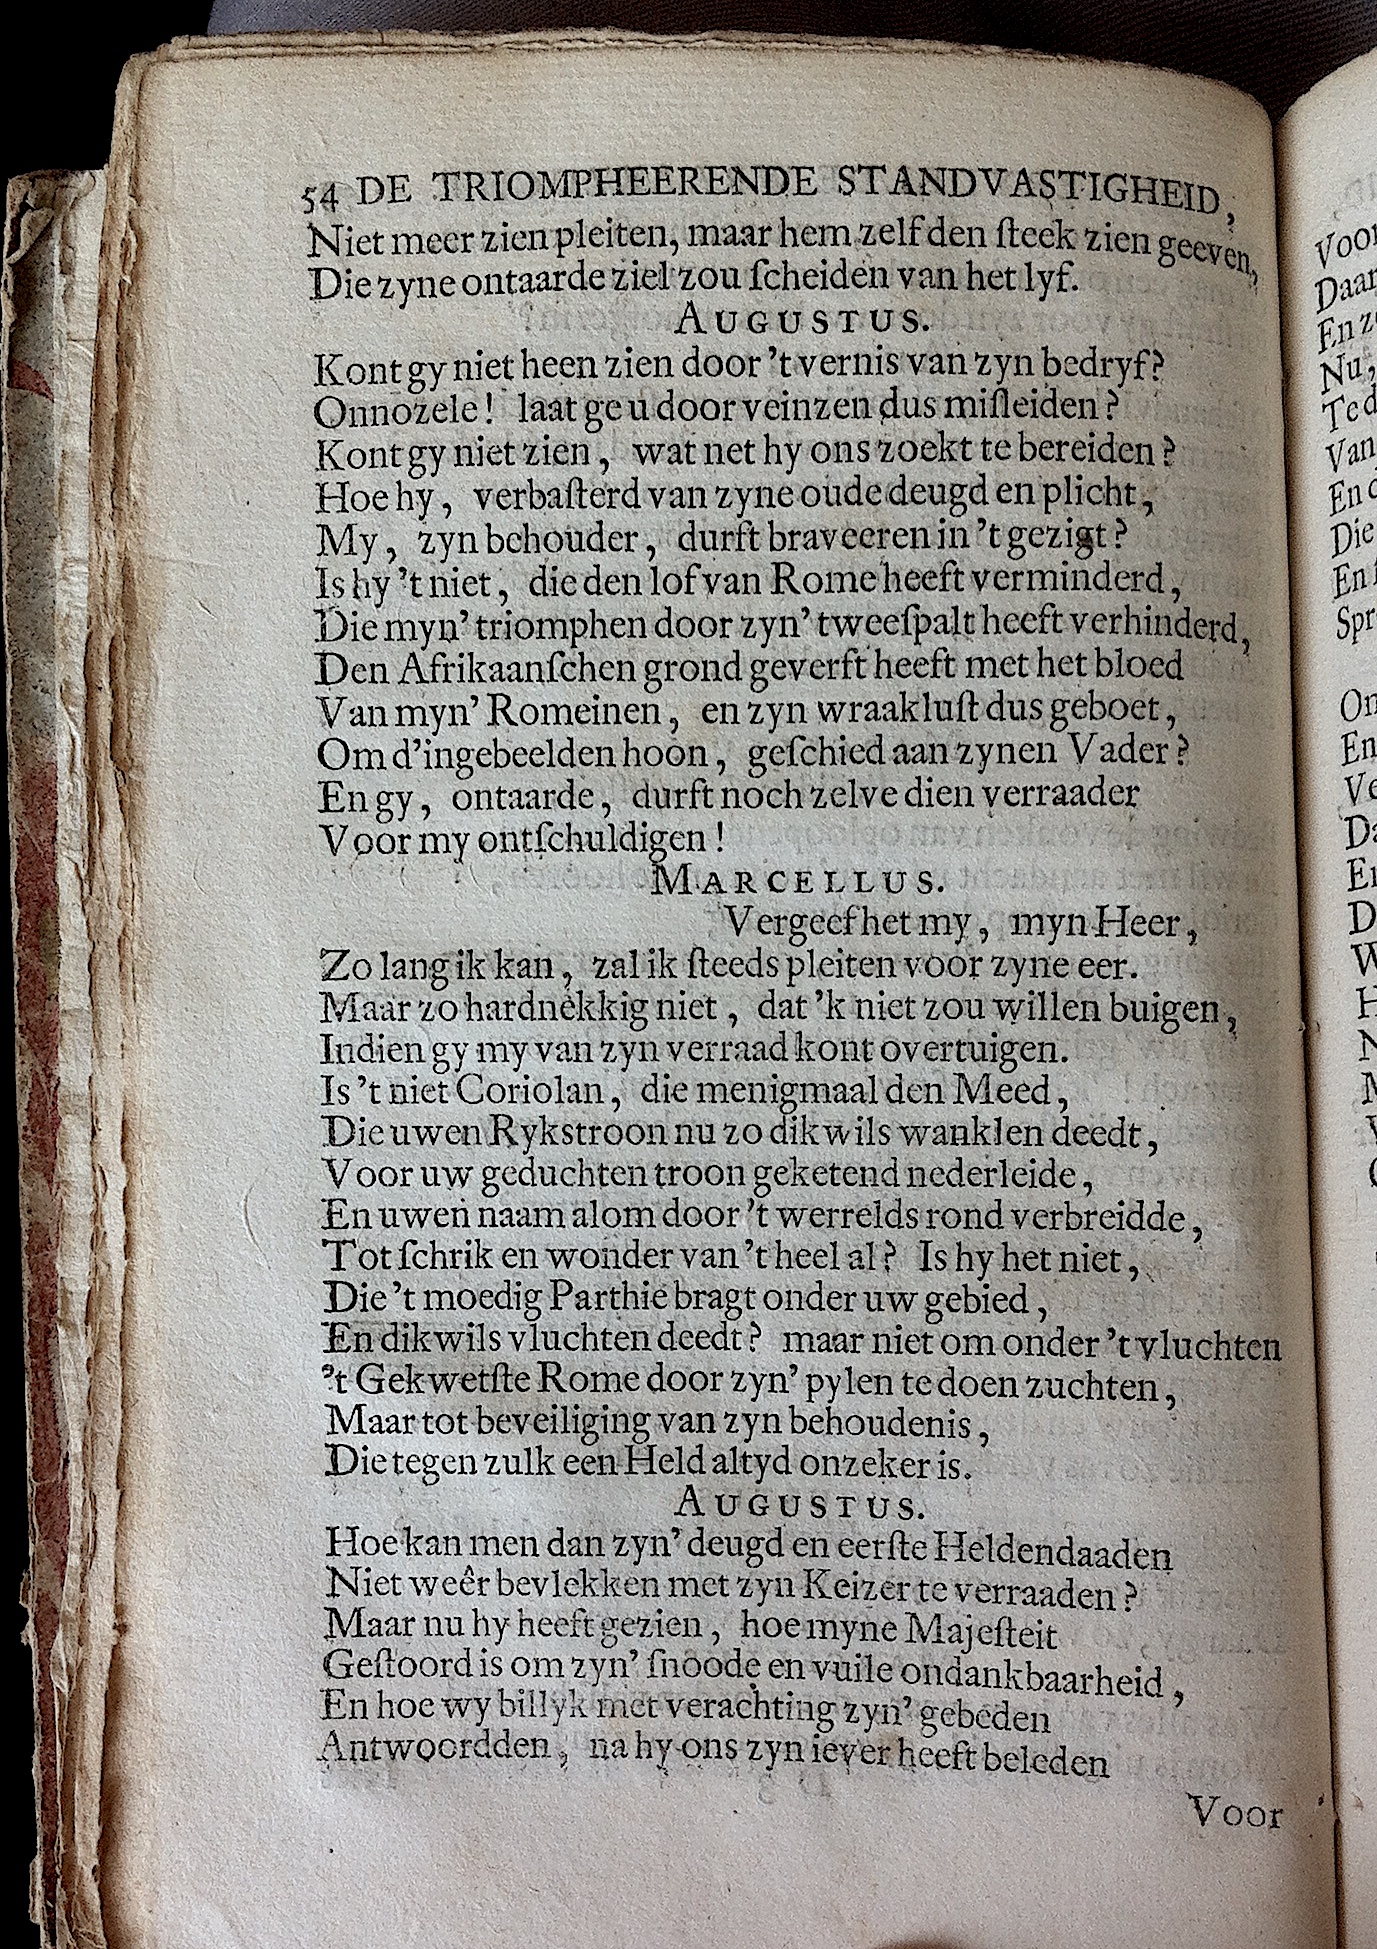 54 DE TRIOMPHEERENDE STANDVASTIGHEID,
Niet meer zien pleiten, maar hem zelf den ſteek zien geeven,
Die zyne ontaarde ziel zou ſcheiden van het lyf.
AUGUSTUS.
Kont gy niet heen zien door 't vernis van zyn bedryf?
Onnozele! laat ge u door veinzen dus miſleiden?
Kont gy niet zien, wat net hy ons zoekt te bereiden?
Hoe hy, verbaſterd van zyne oude deugd en plicht,
My, zyn behouder, durft braveeren in 't gezigt?
Is hy 't niet, die den lof van Rome heeft verminderd,
Die myn' triomphen door zyn' tweeſpalt heeft verhinderd,
Den Afrikaanſchen grond geverft heeft met het bloed
Van myn' Romeinen, en zyn wraakluſt dus geboet,
Om d'ingebeelden hoon, geſchied aan zynen Vader?
En gy, ontaarde, durft noch zelve dien verraader
Voor my ontſchuldigen!
MARCELLUS.
Vergeef het my, myn Heer,
Zo lang ik kan, zal ik ſteeds pleiten voor zyne eer.
Maar zo hardnekkig niet, dat 'k niet zou willen buigen,
Indien gy my van zyn verraad kont overtuigen.
Is 't niet Coriolan, die menigmaal den Meed,
Die uwen Rykstroon nu zo dikwils wanklen deedt,
Voor uw geduchten troon geketend nederleide,
En uwen naam alom door 't werrelds rond verbreidde,
Tot ſchrik en wonder van 't heel al? Is hy het niet,
Die 't moedig Parthie bragt onder uw gebied,
En dikwils vluchten deedt? maar niet om onder 't vluchten
't Gekwetſte Rome door zyn' pylen te doen zuchten,
Maar tot beveiliging van zyn behoudenis,
Die tegen zulk een Held altyd onzeker is.
AUGUSTUS.
Hoe kan men dan zyn' deugd en eerſte Heldendaaden
Niet weêr bevlekken met zyn Keizer te verraaden?
Maar nu hy heeft gezien, hoe myne Majeſteit
Geſtoord is om zyn' ſnoode en vuile ondankbaarheid,
En hoe wy billyk met verachting zyn' gebeden
Antwoordden, na hy ons zyn iever heeft beleden
Voor